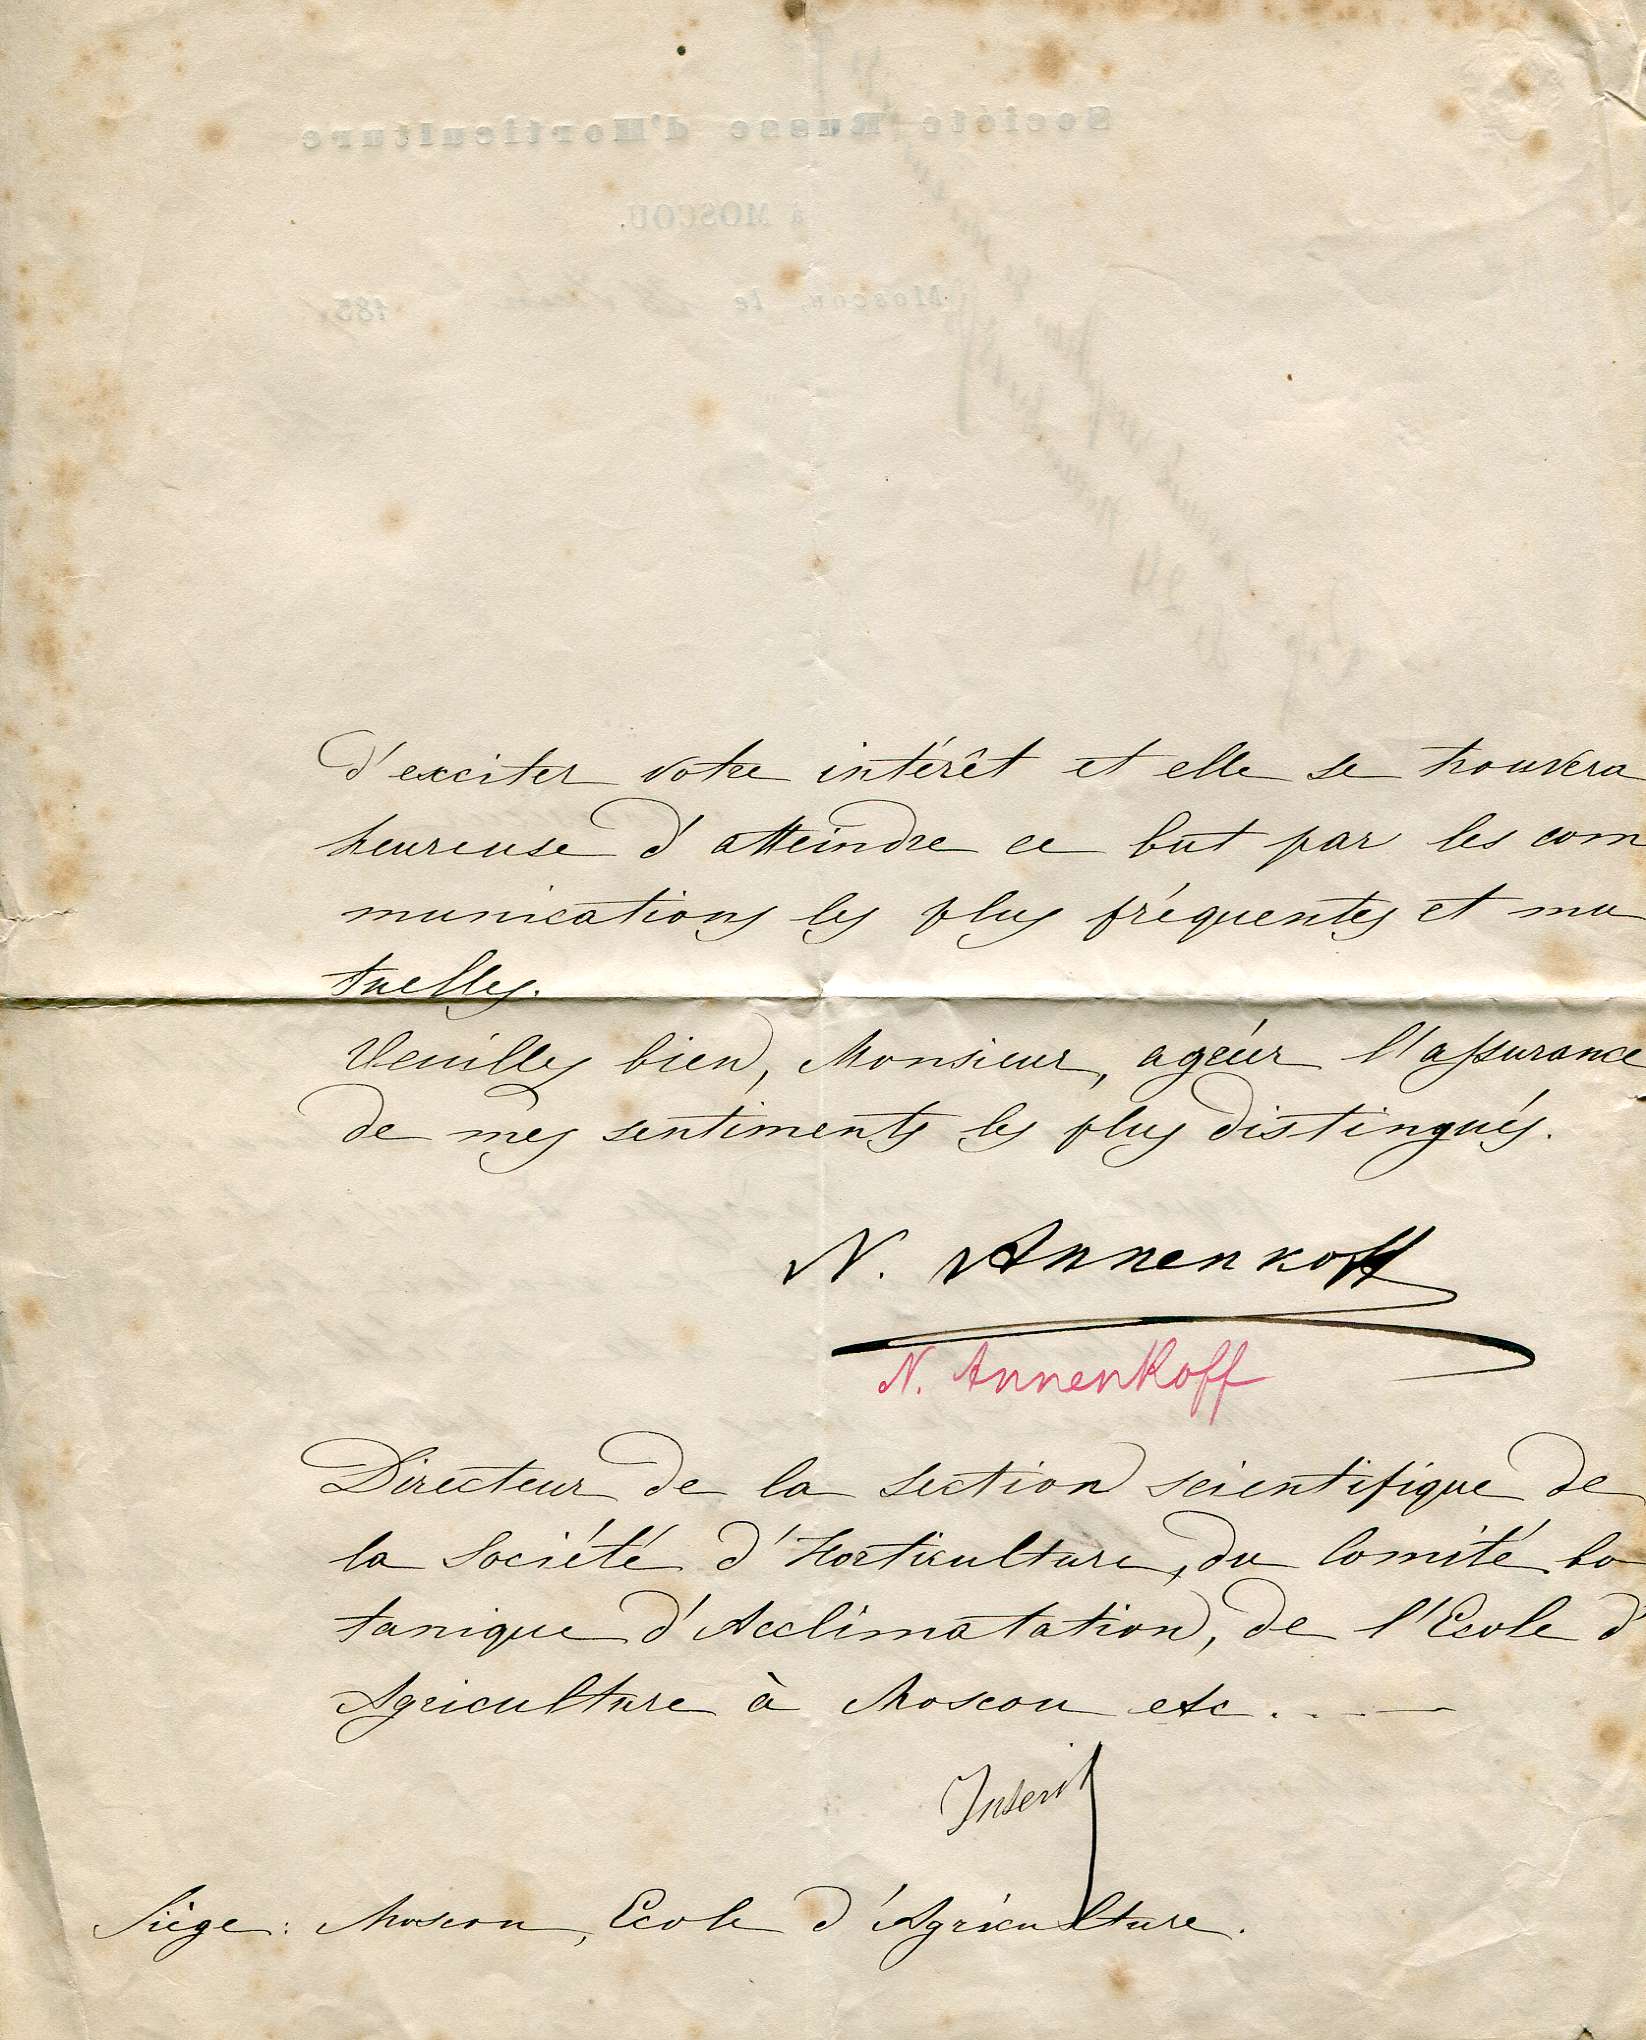 Société Russe d'Horticulture
à MOSCOU.
Moscou, le 185
d'exciter votre intérêt et elle se trouvera
heureuse d'atteindre ce but par les com
munications les plus fréquentes et mu
tuelles.
Veuillez bien, Monsieur, agréer l'assurance
de mes sentiments les plus distingués.
N. Annenkoff
N. Annenkoff
Directeur de la section scientifique de
la Société d'Horticulture, du Comité bo
tanique d'Acclimatation, de l'Ecole d'
Agriculture à Moscou etc.
Inscrit
Siège: Moscou, Ecole d'Agriculture.